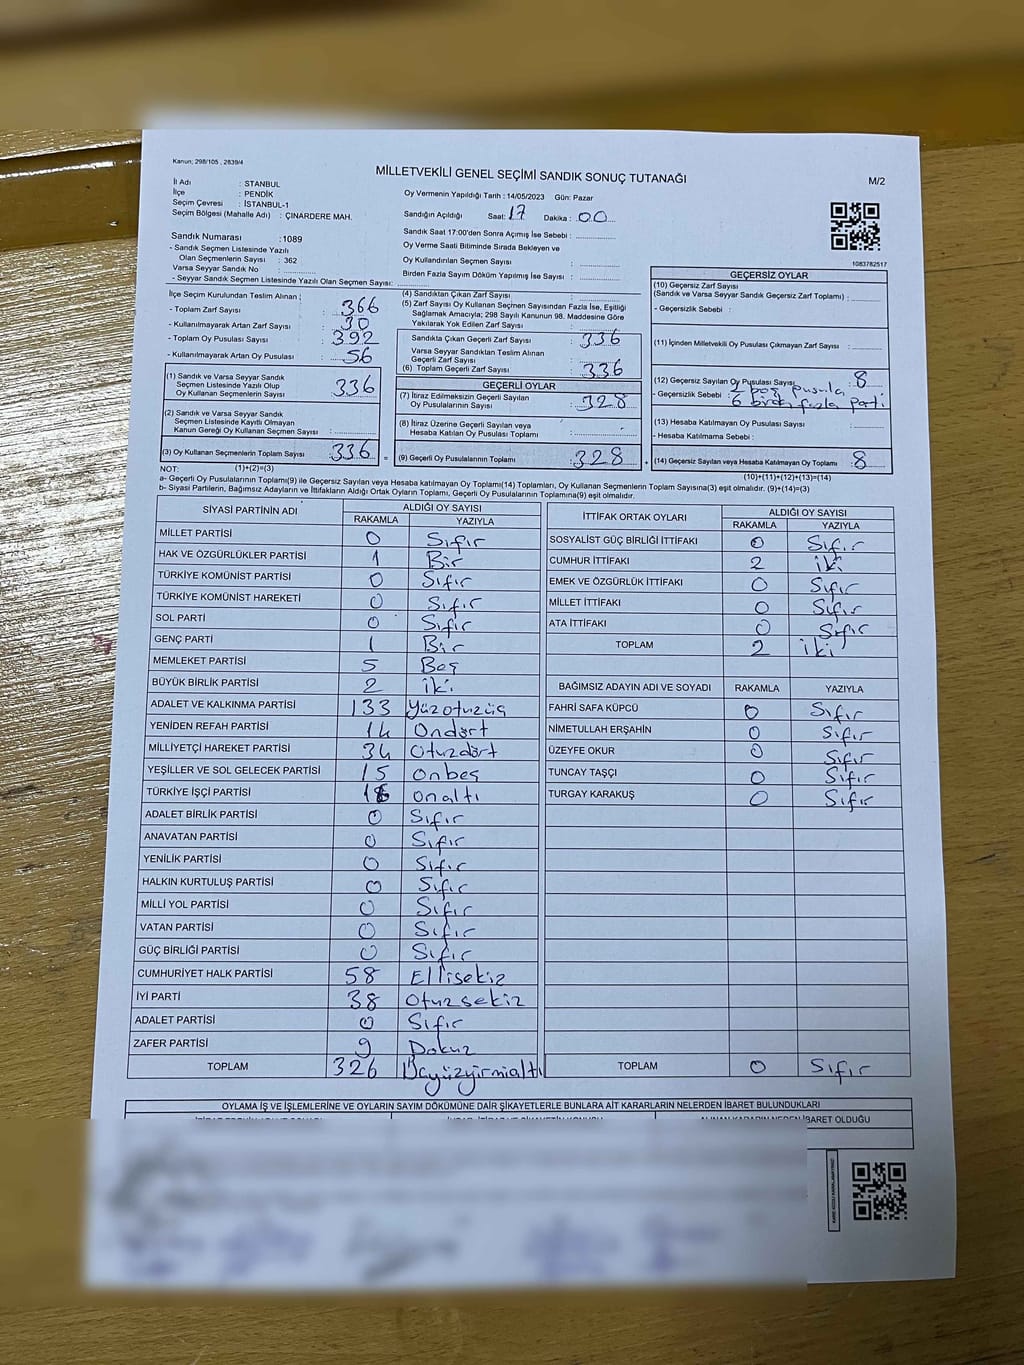 Kanun; 298/105 , 2839/4
MİLLETVEKİLİ GENEL SEÇİMİ SANDIK SONUÇ TUTANAĞI
M/2
İl Adı : STANBUL
İlçe : PENDİK
Seçim Çevresi : İSTANBUL-1
Seçim Bölgesi (Mahalle Adı) : ÇINARDERE MAH.
Sandık Numarası :1089
- Sandık Seçmen Listesinde Yazılı
Olan Seçmenlerin Sayısı : 362
Varsa Seyyar Sandık No :
- Seyyar Sandık Seçmen Listesinde Yazılı Olan Seçmen Sayısı:
Oy Vermenin Yapıldığı Tarih : 14/05/2023 Gün: Pazar
Sandığın Açıldığı Saat: 17 Dakika : 00
Sandık Saat 17:00'den Sonra Açımış İse Sebebi :
Oy Verme Saati Bitiminde Sırada Bekleyen ve
Oy Kullandırılan Seçmen Sayısı :
Birden Fazla Sayım Döküm Yapılmış İse Sayısı :
1083782517
İlçe Seçim Kurulundan Teslim Alınan ;
- Toplam Zarf Sayısı : 366
- Kullanılmayarak Artan Zarf Sayısı : 30
- Toplam Oy Pusulası Sayısı : 392
- Kullanılmayarak Artan Oy Pusulası : 56
(1) Sandık ve Varsa Seyyar Sandık
Seçmen Listesinde Yazılı Olup
Oy Kullanan Seçmenlerin Sayısı : 336
(2) Sandık ve Varsa Seyyar Sandık
Seçmen Listesinde Kayıtlı Olmayan
Kanun Gereği Oy Kullanan Seçmen Sayısı :
(3) Oy Kullanan Seçmenlerin Toplam Sayısı : 336 =
(4) Sandıktan Çıkan Zarf Sayısı :
(5) Zarf Sayısı Oy Kullanan Seçmen Sayısından Fazla İse, Eşitliği
Sağlamak Amacıyla; 298 Sayılı Kanunun 98. Maddesine Göre
Yakılarak Yok Edilen Zarf Sayısı :
Sandıkta Çıkan Geçerli Zarf Sayısı : 336
Varsa Seyyar Sandıktan Teslim Alınan
Geçerli Zarf Sayısı :
(6) Toplam Geçerli Zarf Sayısı : 336
GEÇERLİ OYLAR
(7) İtiraz Edilmeksizin Geçerli Sayılan
Oy Pusulalarının Sayısı : 328
(8) İtiraz Üzerine Geçerli Sayılan veya
Hesaba Katılan Oy Pusulası Toplamı :
(9) Geçerli Oy Pusulalarının Toplamı : 328 +
GEÇERSİZ OYLAR
(10) Geçersiz Zarf Sayısı
(Sandık ve Varsa Seyyar Sandık Geçersiz Zarf Toplamı) :
- Geçersizlik Sebebi :
(11) İçinden Milletvekili Oy Pusulası Çıkmayan Zarf Sayısı:
(12) Geçersiz Sayılan Oy Pusulası Sayısı : 8
- Geçersizlik Sebebi : 2 boş pusula
6 birden fazla parti
(13) Hesaba Katılmayan Oy Pusulası Sayısı :
- Hesaba Katılmama Sebebi :
(14) Geçersiz Sayılan veya Hesaba Katılmayan Oy Toplamı : 8
NOT: (1)+(2)=(3) (10)+(11)+(12)+(13)=(14)
a- Geçerli Oy Pusulaları Toplamı(9) ile Geçersiz Sayılan veya Hesaba katılmayan Oy Toplamı(14) Toplamları, Oy Kullanan Seçmenlerin Toplam Sayısına(3) eşit olmalıdır. (9)+(14)=(3)
b- Siyasi Partilerin, Bağımsız Adayların ve İttifakların Aldığı Ortak Oyların Toplamı, Geçerli Oy Pusulalarının Toplamına(9) eşit olmalıdır.
SİYASİ PARTİNİN ADI ALDIĞI OY SAYISI
RAKAMLA YAZIYLA
MİLLET PARTİSİ 0 Sıfır
HAK VE ÖZGÜRLÜKLER PARTİSİ 1 Bir
TÜRKİYE KOMÜNİST PARTİSİ 0 Sıfır
TÜRKİYE KOMÜNİST HAREKETİ 0 Sıfır
SOL PARTİ 0 Sıfır
GENÇ PARTİ 1 Bir
MEMLEKET PARTİSİ 5 Beş
BÜYÜK BİRLİK PARTİSİ 2 iki
ADALET VE KALKINMA PARTİSİ 133 Yüzotuzüç
YENİDEN REFAH PARTİSİ 14 Ondört
MİLLİYETÇİ HAREKET PARTİSİ 34 Otuzdört
YEŞİLLER VE SOL GELECEK PARTİSİ 15 onbeş
TÜRKİYE İŞÇİ PARTİSİ 16 onaltı
ADALET BİRLİK PARTİSİ 0 Sıfır
ANAVATAN PARTİSİ 0 Sıfır
YENİLİK PARTİSİ 0 Sıfır
HALKIN KURTULUŞ PARTİSİ 0 Sıfır
MİLLİ YOL PARTİSİ 0 Sıfır
VATAN PARTİSİ 0 Sıfır
GÜÇ BİRLİĞİ PARTİSİ 0 Sıfır
CUMHURİYET HALK PARTİSİ 58 Ellisekiz
İYİ PARTİ 38 Otuzsekiz
ADALET PARTİSİ 0 Sıfır
ZAFER PARTİSİ 9 Dokuz
TOPLAM 326 Üçyüzyirmialtı
İTTİFAK ORTAK OYLARI ALDIĞI OY SAYISI
RAKAMLA YAZIYLA
SOSYALİST GÜÇ BİRLİĞİ İTTİFAKI 0 Sıfır
CUMHUR İTTİFAKI 2 iki
EMEK VE ÖZGÜRLÜK İTTİFAKI 0 Sıfır
MİLLET İTTİFAKI 0 Sıfır
ATA İTTİFAKI 0 Sıfır
TOPLAM 2 iki
BAĞIMSIZ ADAYIN ADI VE SOYADI RAKAMLA YAZIYLA
FAHRİ SAFA KÜPCÜ 0 Sıfır
NİMETULLAH ERŞAHİN 0 Sıfır
ÜZEYFE OKUR 0 Sıfır
TUNCAY TAŞÇI 0 Sıfır
TURGAY KARAKUŞ 0 Sıfır
TOPLAM 0 Sıfır
OYLAMA İŞ VE İŞLEMLERİNE VE OYLARIN SAYIM DÖKÜMÜNE DAİR ŞİKAYETLERLE BUNLARA AİT KARARLARIN NELERDEN İBARET BULUNDUKLARI
ALINAN KARARIN NEDEN İBARET OLDUĞU